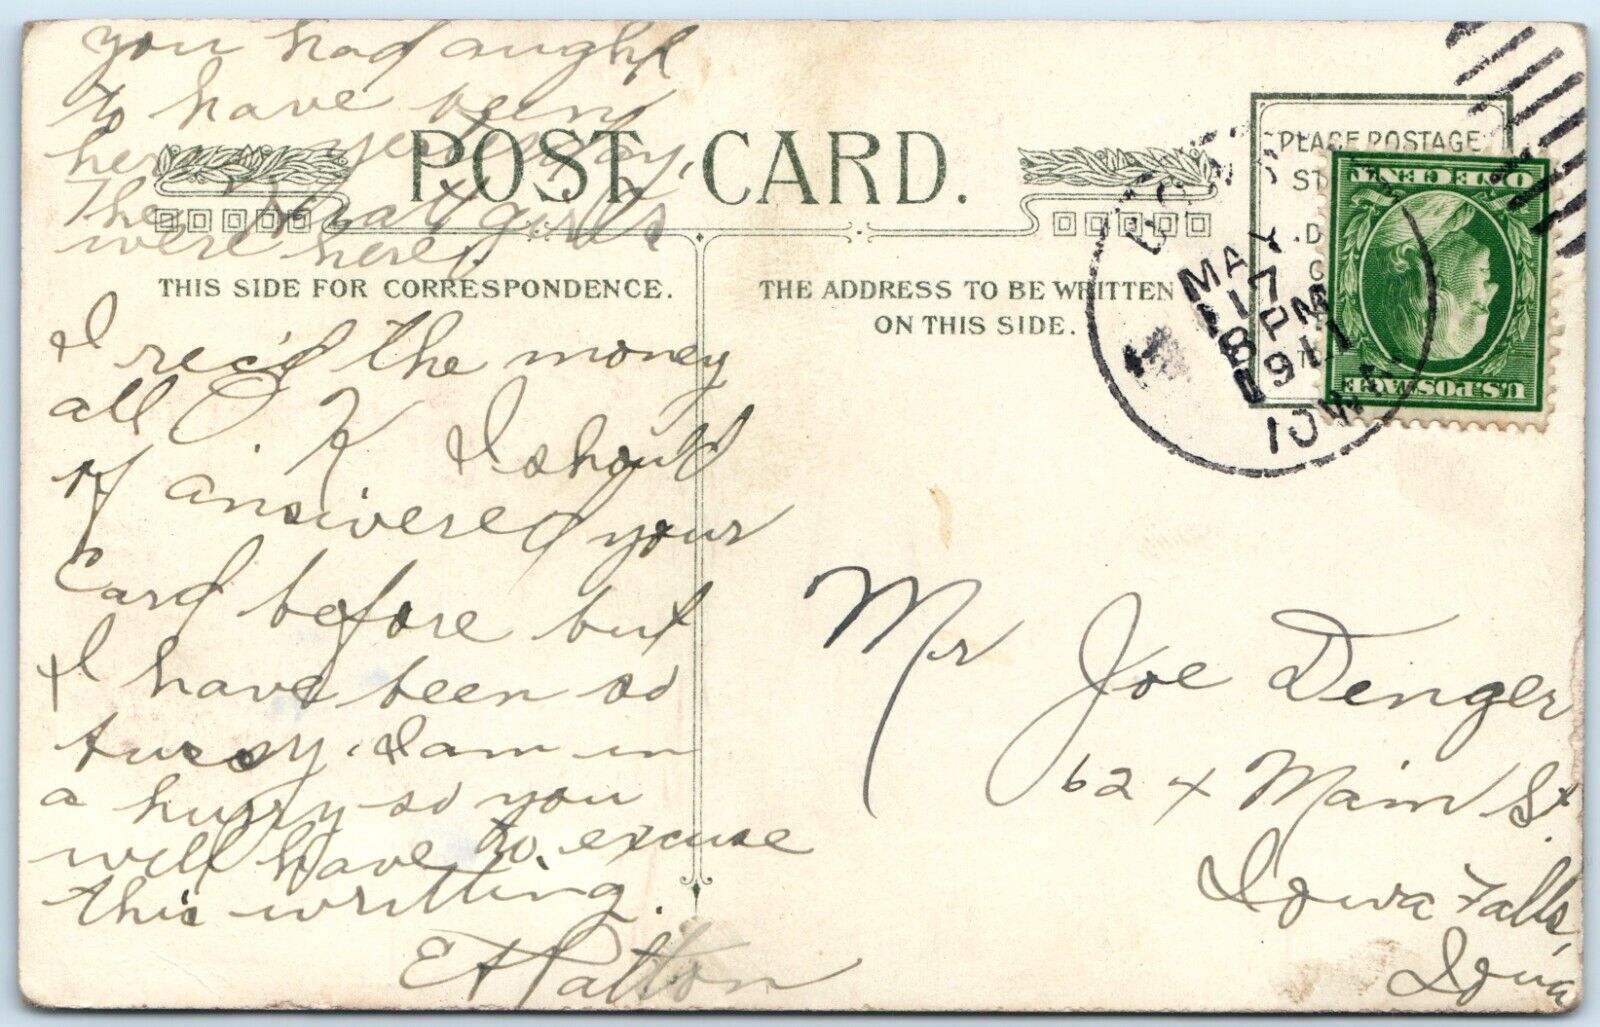 you had aught
to have been
here yesterday.
The Wyatt girls
were here.
POST CARD.
THIS SIDE FOR CORRESPONDENCE.
THE ADDRESS TO BE WRITTEN
ON THIS SIDE.
PLACE POSTAGE
ONE CENT
U.S. POSTAGE
MAY
17
8 PM
1911
IOWA
I rec'd the money
all O.K. I should
of answered your
card before but
I have been so
bussy. I am in
a hurry so you
will have to excuse
this writting.
E Patton
Mr Joe Denger
624 Main St.
Iowa Falls,
Iowa